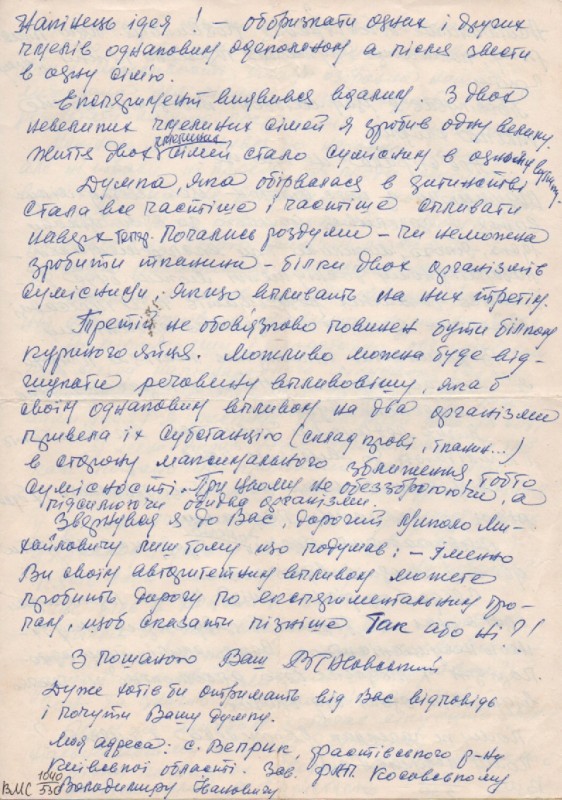 Накінець ідея! – оббризкати одних і других
пчелів однаповим одеколоном а після звести
в одну сімію.
Експеримент виявився вдалим. З двох
невеликих пчелиних сімей я зробив одну велику.
Життя двох сімей стало сумісним в одному вулику.
Думка, яка обірвалась в дитинстві
стала все частіше і частіше спливати
наверх. Почались роздуми – чи неможна
зробити тканини – білки двох організмів
сумісними якщо вплывать на них третім.
Третім не обовязково повинен бути білком
куриного яйця. Можливо можна буде від-
шукати речовину впливовішу, яка б
своїм однаповим впливом на два організми
привела їх субстанцію (склад крові, тканин...)
в сторону максимального зближення, тобто
сумісності. При цьому не обеззброюючи, а
підсилюючи обидва організми.
Звернувся я до Вас, дорогий Микола Ми-
хайловичу лиш тому що подумав: – Іменно
Ви своїм авторитетним впливом можете
пробить дорогу по експериментальним тро-
пам, щоб сказати пізніше Так або Ні?!
З пошаною Ваш
Дуже хотів би отримать від Вас відповідь
і почути Вашу думку.
Моя адреса: с. Веприк, фастівського р-ну
Київської області. Зав. ФАП. Косовському
Володимиру Івановичу
ВМС 1040/530